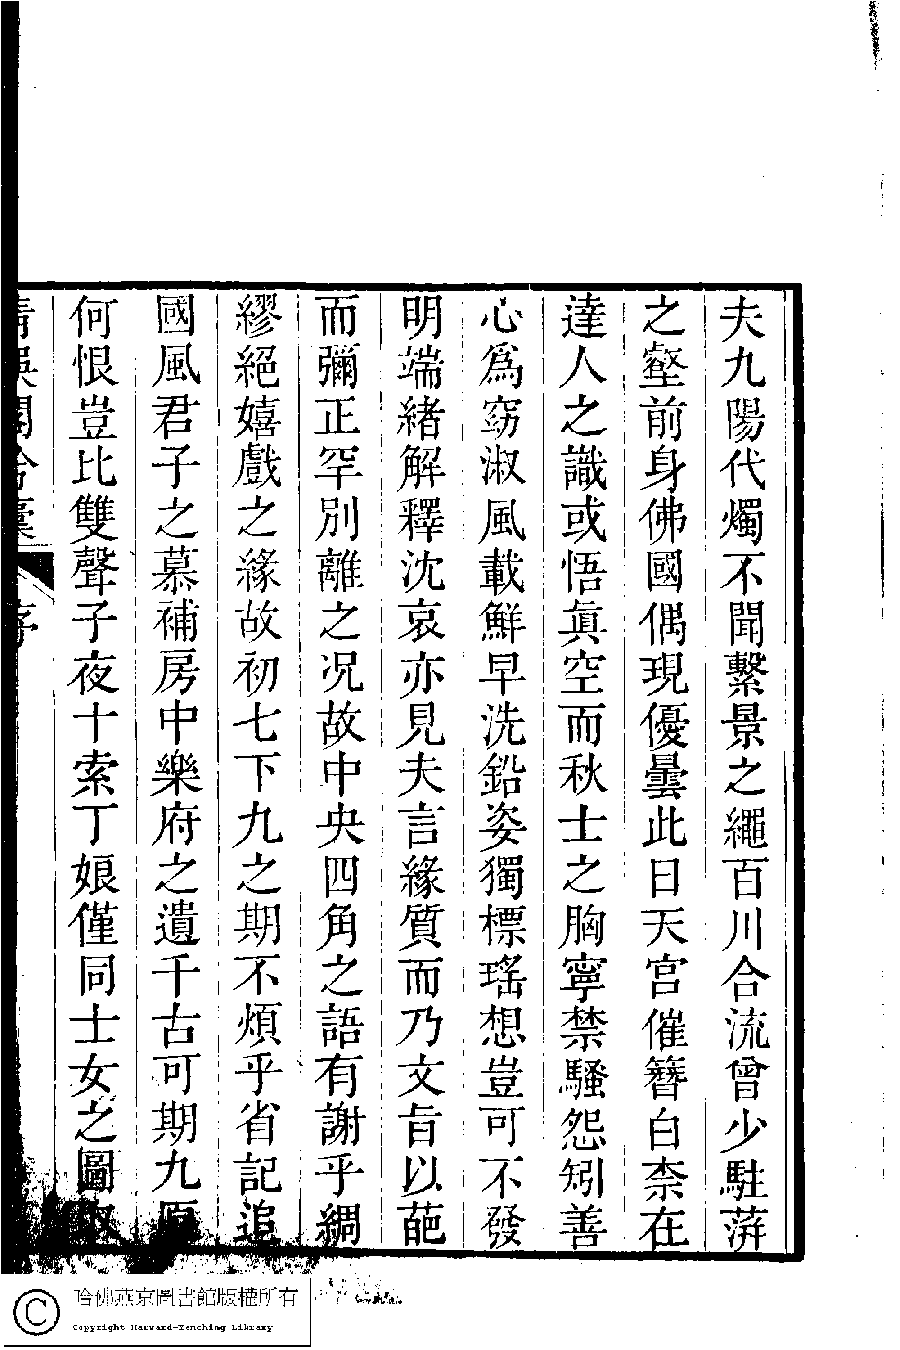 夫九陽代燭不聞繫景之繩百川合流曾少駐蓱
之壑前身佛國偶現優曇此日天宮催簪白柰在
達人之識或悟眞空而秋士之胸寧禁騷怨矧善
心爲窈淑風載鮮早洗鉛姿獨標瑤想豈可不發
明端緒解釋沈哀亦見夫言緣質而乃文旨以葩
而彌正罕別離之况故中央四角之語有謝乎綢
繆絕嬉戲之緣故初七下九之期不煩乎省記追
國風君子之慕補房中樂府之遺千古可期九原
何恨豈比雙聲子夜十索丁娘僅同士女之圖
序
哈佛燕京圖書館版權所有
Copyright Harvard-Yenching Library